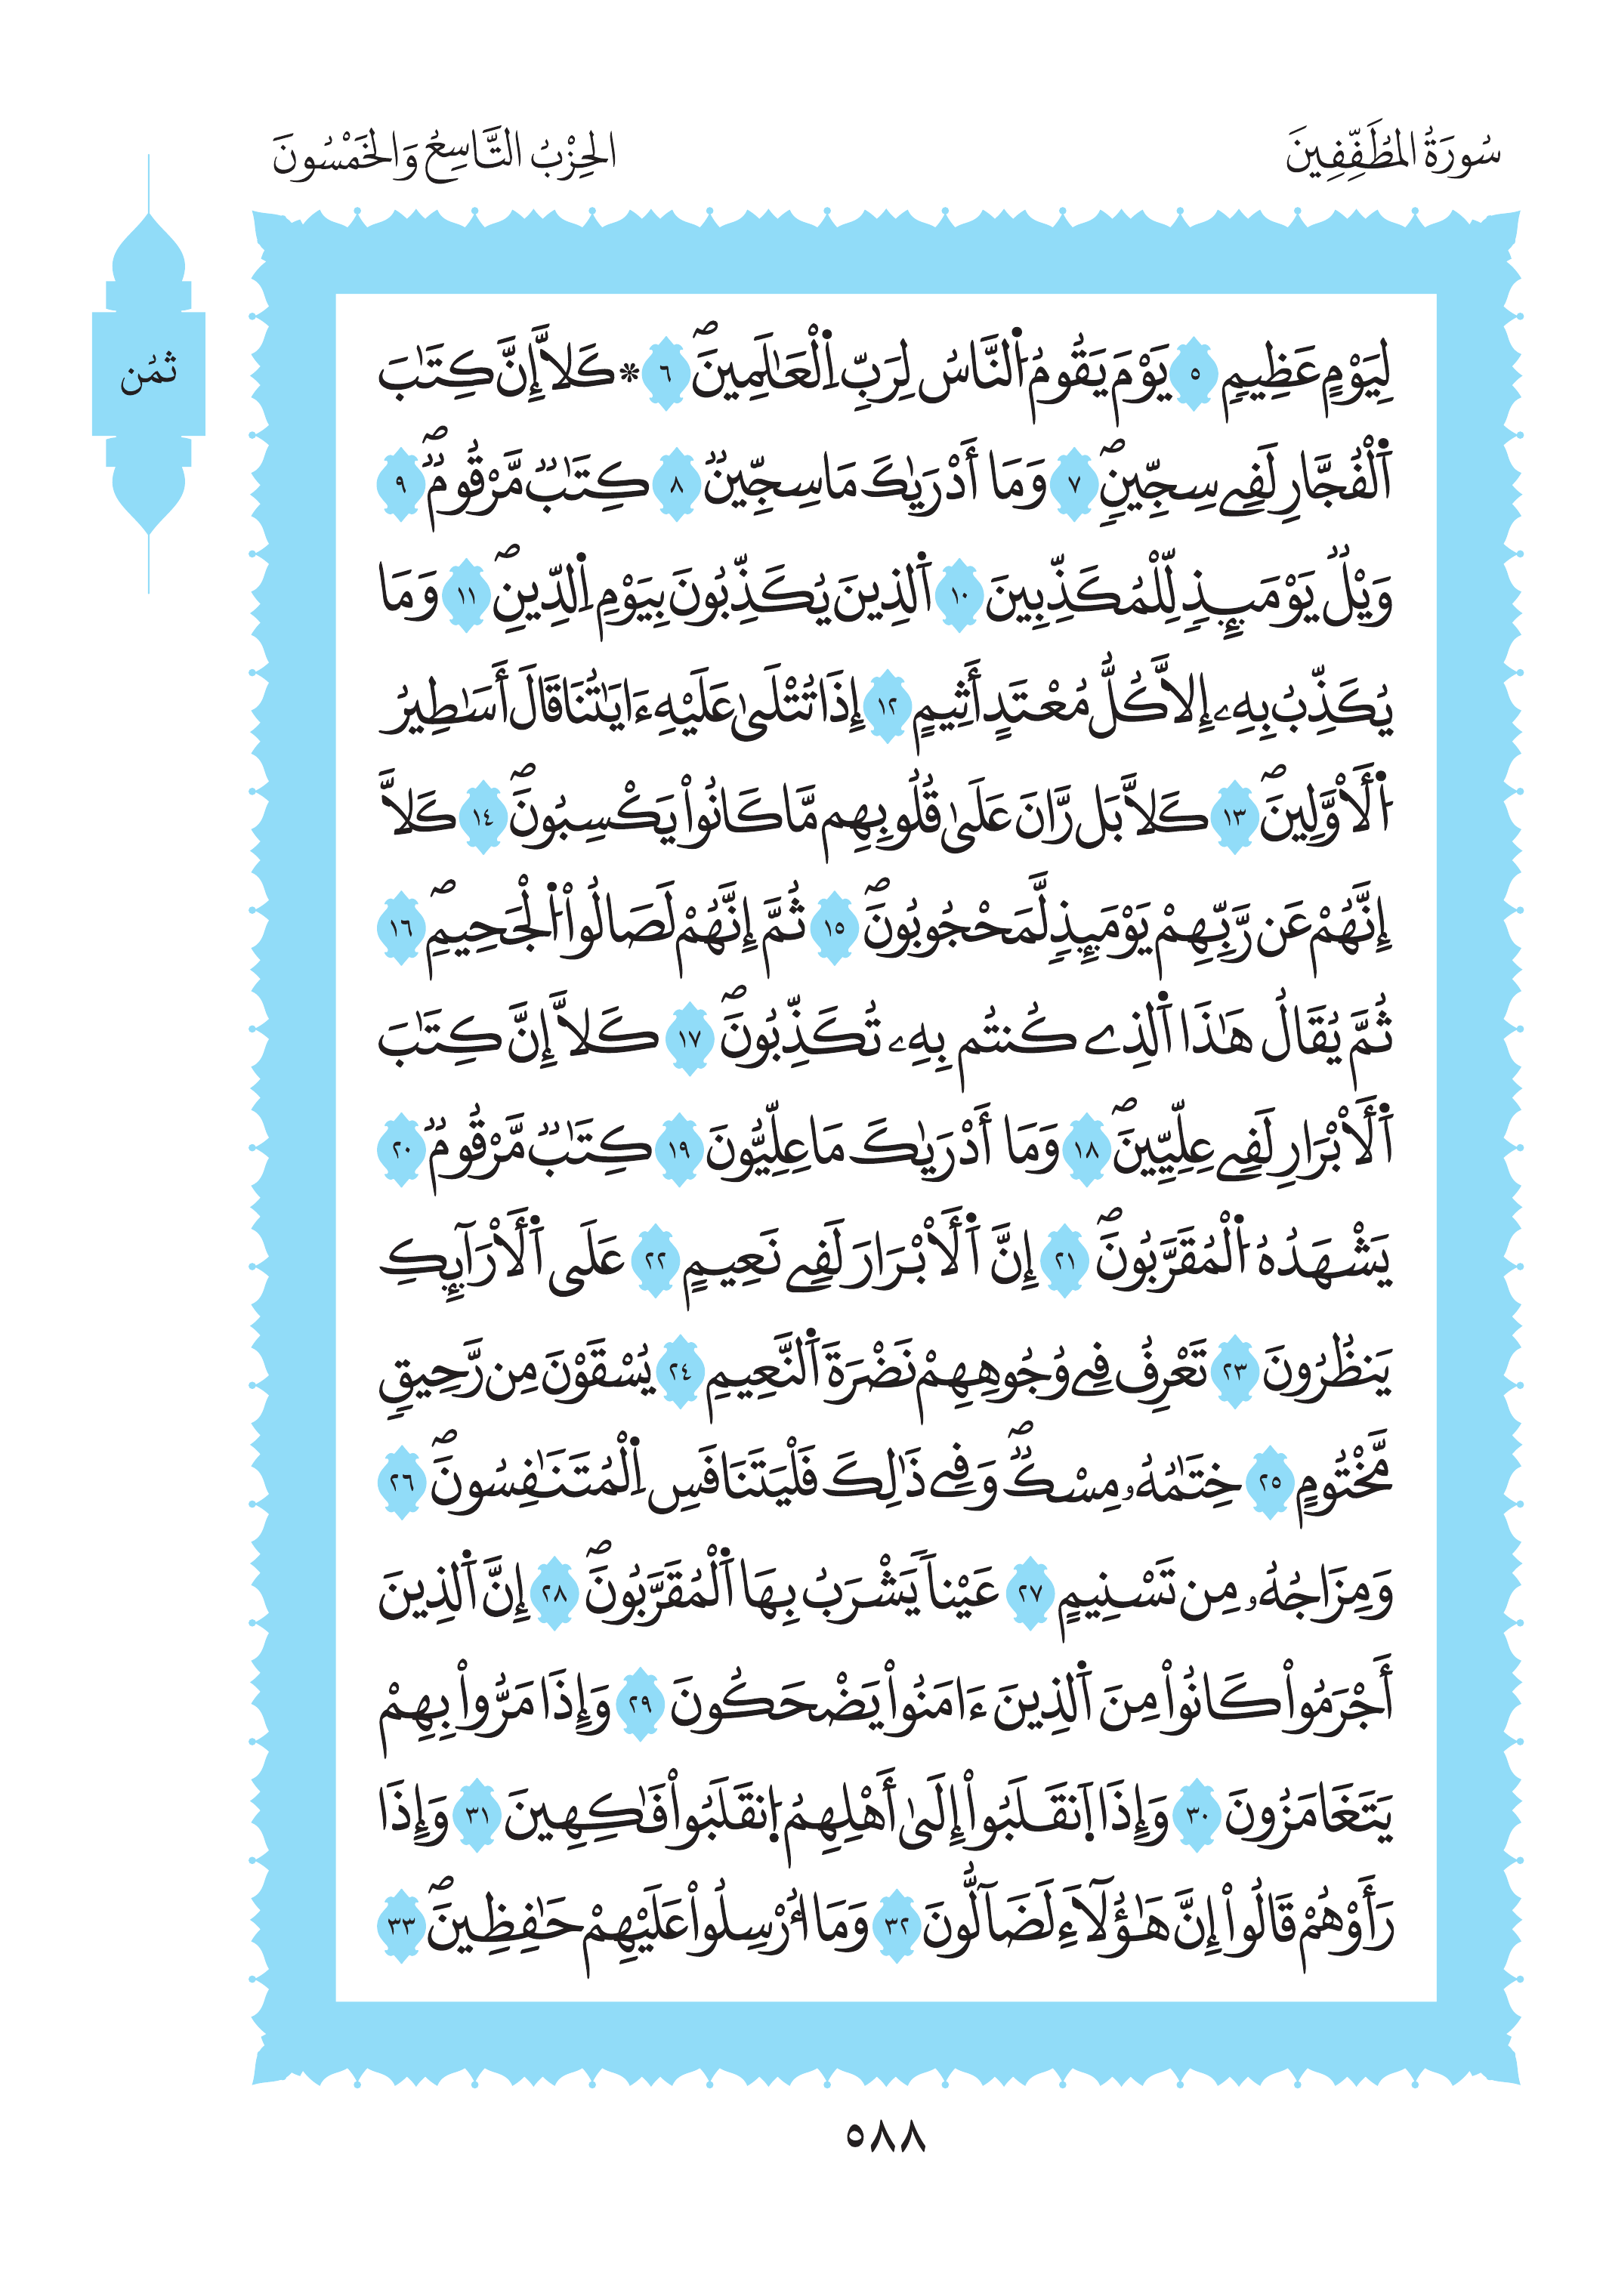 سُورَةُ المُطَفِّفِينَ
الحِزْبُ التَّاسِعُ وَالخَمْسُونَ
ثُمُن
لِيَوْمٍ عَظِيمٍ ٥ يَوْمَ يَقُومُ اُ۬لنَّاسُ لِرَبِّ اِ۬لْعَٰلَمِينَۖ ٦ * كَلَّآ إِنَّ كِتَٰبَ
اَ۬لْفُجَّارِ لَفِے سِجِّينٖۖ ٧ وَمَا أَدْرَيٰكَ مَا سِجِّينٞ ٨ كِتَٰبٞ مَّرْقُومٞۖ ٩
وَيْلٞ يَوْمَئِذٖ لِّلْمُكَذِّبِينَ ١٠ اَ۬لذِينَ يُكَذِّبُونَ بِيَوْمِ اِ۬لدِّينِۖ ١١ وَمَا
يُكَذِّبُ بِهِۦ إِلَّا كُلُّ مُعْتَدٍ أَثِيمٍ ١٢ إِذَا تُتْلَىٰ عَلَيْهِ ءَايَٰتُنَا قَالَ أَسَٰطِيرُ
اُ۬لَأَوَّلِينَۖ ١٣ كَلَّا بَل رَّانَ عَلَىٰ قُلُوبِهِم مَّا كَانُواْ يَكْسِبُونَۖ ١٤ كَلَّا
إِنَّهُمْ عَن رَّبِّهِمْ يَوْمَئِذٖ لَّمَحْجُوبُونَۖ ١٥ ثُمَّ إِنَّهُمْ لَصَالُواْ اُ۬لْجَحِيمِۖ ١٦
ثُمَّ يُقَالُ هَٰذَا اَ۬لذِے كُنتُم بِهِۦ تُكَذِّبُونَۖ ١٧ كَلَّا إِنَّ كِتَٰبَ
اَ۬لَأَبْرَارِ لَفِے عِلِّيِّينَۖ ١٨ وَمَا أَدْرَيٰكَ مَا عِلِّيُّونَ ١٩ كِتَٰبٞ مَّرْقُومٞ ٢٠
يَشْهَدُهُ اُ۬لْمُقَرَّبُونَۖ ٢١ إِنَّ اَ۬لَأَبْرَارَ لَفِے نَعِيمٍ ٢٢ عَلَى اَ۬لَأَرَآئِكِ
يَنظُرُونَ ٢٣ تَعْرِفُ فِے وُجُوهِهِمْ نَضْرَةَ اَ۬لنَّعِيمِ ٢٤ يُسْقَوْنَ مِن رَّحِيقٖ
مَّخْتُومٍ ٢٥ خِتَٰمُهُۥ مِسْكٞۖ وَفِے ذَٰلِكَ فَلْيَتَنَافَسِ اِ۬لْمُتَنَٰفِسُونَۖ ٢٦
وَمِزَاجُهُۥ مِن تَسْنِيمٍ ٢٧ عَيْناٗ يَشْرَبُ بِهَا اَ۬لْمُقَرَّبُونَۖ ٢٨ إِنَّ اَ۬لذِينَ
أَجْرَمُواْ كَانُواْ مِنَ اَ۬لذِينَ ءَامَنُواْ يَضْحَكُونَ ٢٩ وَإِذَا مَرُّواْ بِهِمْ
يَتَغَامَزُونَ ٣٠ وَإِذَا اَ۪نقَلَبُواْ إِلَىٰ أَهْلِهِمُ اُ۪نقَلَبُواْ فَٰكِهِينَ ٣١ وَإِذَا
رَأَوْهُمْ قَالُواْ إِنَّ هَٰؤُلَآءِ لَضَآلُّونَ ٣٢ وَمَا أُرْسِلُواْ عَلَيْهِمْ حَٰفِظِينَۖ ٣٣
٥٨٨